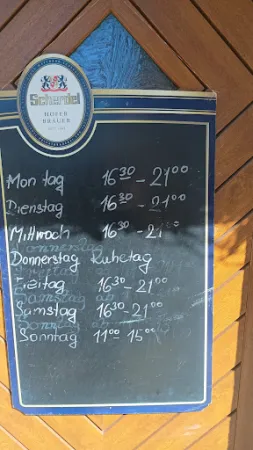 Scherdel
HOFER
BRAUER
Montag 16³⁰ - 21⁰⁰
Dienstag 16³⁰ - 21⁰⁰
Mittwoch 16³⁰ - 21⁰⁰
Donnerstag Ruhetag
Freitag 16³⁰ - 21⁰⁰
Samstag 16³⁰ - 21⁰⁰
Sonntag 11⁰⁰ 15⁰⁰